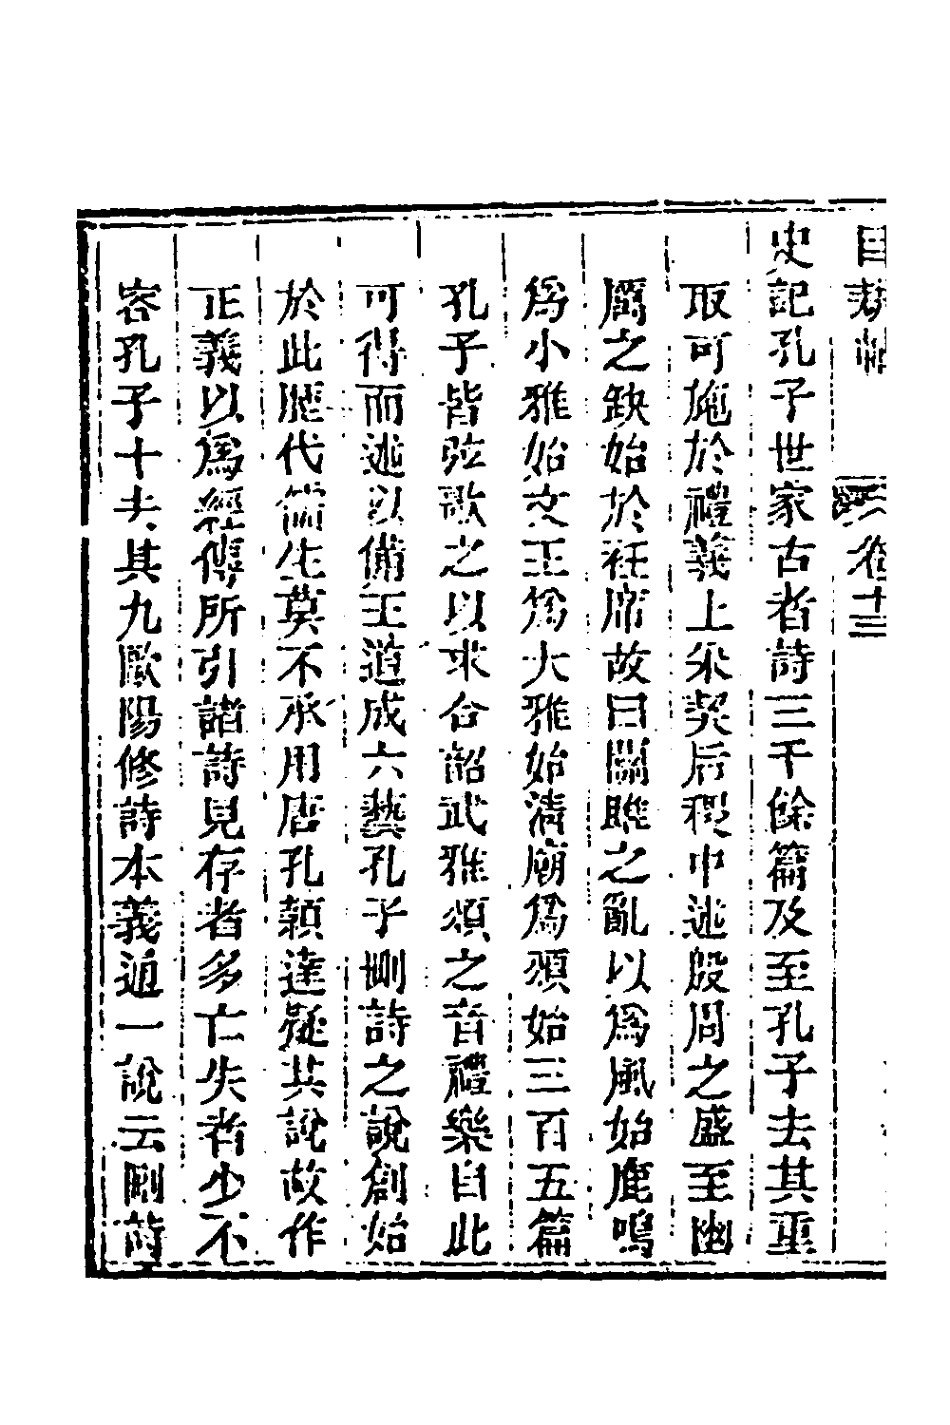 卷十三
史記孔子世家古者詩三千餘篇及至孔子去其重
取可施於禮義上采契后稷中述殷周之盛至幽
厲之缺始於衽席故曰關雎之亂以爲風始鹿鳴
爲小雅始文王爲大雅始淸廟爲頌始三百五篇
孔子皆弦歌之以求合韶武雅頌之音禮樂自此
可得而述以備王道成六藝孔子刪詩之說創始
於此歷代儒生莫不承用唐孔穎達疑其說故作
正義以爲經傳所引諸詩見存者多亡失者少不
容孔子十去其九歐陽修詩本義通一說云刪詩